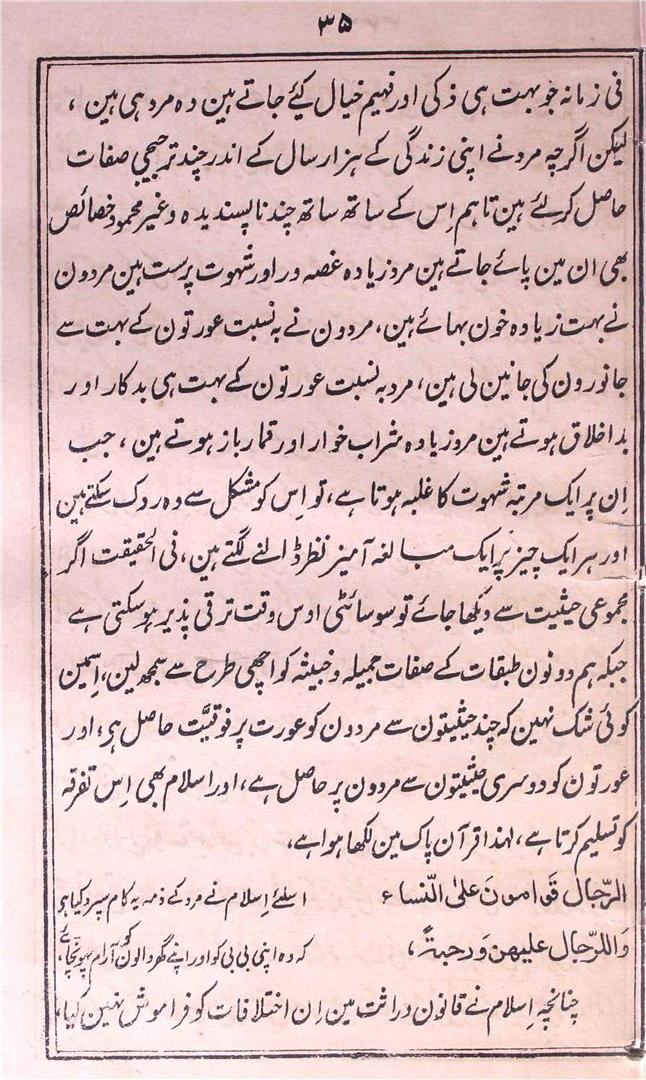 ۳۵
فی زمانہ جو بہت ہی ذکی اور فہیم خیال کیٔے جاتے ہین وہ مرد ہی ہین ،
لیکن اگرچہ مرد نے اپنی زندگی کے ہزار سال کے اندر چند ترجیحی صفات
حاصل کرلئے ہین تاہم اِس کے ساتھ ساتھ چند ناپسندیدہ وغیر محمود خصائص
بھی ان مین پائے جاتے ہین مرد زیادہ غصہ ور اور شہوت پرست ہین مردون
نے بہت زیادہ خون بہائے ہین، مردون نے بہ نسبت عورتون کے بہت سے
جانورون کی جانین لی ہین، مرد بہ نسبت عورتون کے بہت ہی بدکار اور
بد اخلاق ہوتے ہین مرد زیادہ شراب خوار اور قمار باز ہوتے ہین ، جب
اِن پر ایک مرتبہ شہوت کا غلبہ ہوتا ہے، تو اِس کو مشکل سے وہ روک سکتے ہین
اور ہر ایک چیز پر ایک مبالغہ آمیز نظر ڈالنے لگتے ہین، فی الحقیقت اگر
مجموعی حیثیت سے دیکھا جائے تو سوسائٹی اوس وقت ترقی پذیر ہوسکتی ہے
جبکہ ہم دونون طبقات کے صفات جمیلہ و خبیثہ کو اچھی طرح سے سمجھ لین، اِسمین
کوئی شک نہین کہ چند حیثیتون سے مردون کو عورت پر فوقیّت حاصل ہی، اور
عورتون کو دوسری حیثیتون سے مردون پر حاصل ہے، اور اسلام بھی اِس تفرقہ
کو تسلیم کرتا ہے، لہذا قرآن پاک مین لکھا ہوا ہے،
الرّجال قوامونَ علیٰ النّساء اسلئے اِسلام نے مرد کے ذمہ یہ کام سپرد کیا ہو
وَاللرّجال علیهن وَرحبةٌ، کہ وہ اپنی بی بی کو اور اپنے گھر والون کو آرام پہونچائے،
چنانچہ اِسلام نے قانون وراثت مین اِن اختلافات کو فراموش نہین کیا،